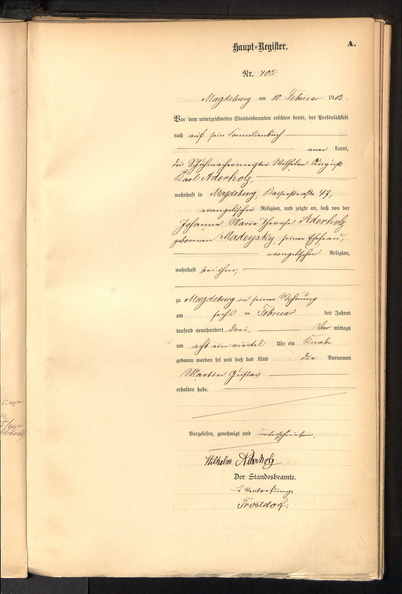 Haupt-Register.
A.
Nr. 405.
Magdeburg am 10. Februar 1903.
Vor dem unterzeichneten Standesbeamten erschien heute, der Persönlichkeit
nach auf sein Familienbuch
aner kannt,
der Schuhmachermeister Wilhelm August
Karl Aderholz,
wohnhaft in Magdeburg, 47,
evangelischer Religion, und zeigte an, daß von der
Johanna Marie Aderholz
geborenen Madeysky, seiner Ehefrau,
evangelischer Religion,
wohnhaft bei ihm,
zu Magdeburg in seiner Wohnung
am sechs ten Februar des Jahres
tausend neunhundert drei, Vor mittags
um acht ein viertel Uhr ein Knabe
geboren worden sei und daß das Kind die Vornamen
Martin Gustav
erhalten habe.
Vorgelesen, genehmigt und unterschrieben.
Wilhelm Aderholz
Der Standesbeamte.
Vertretung.